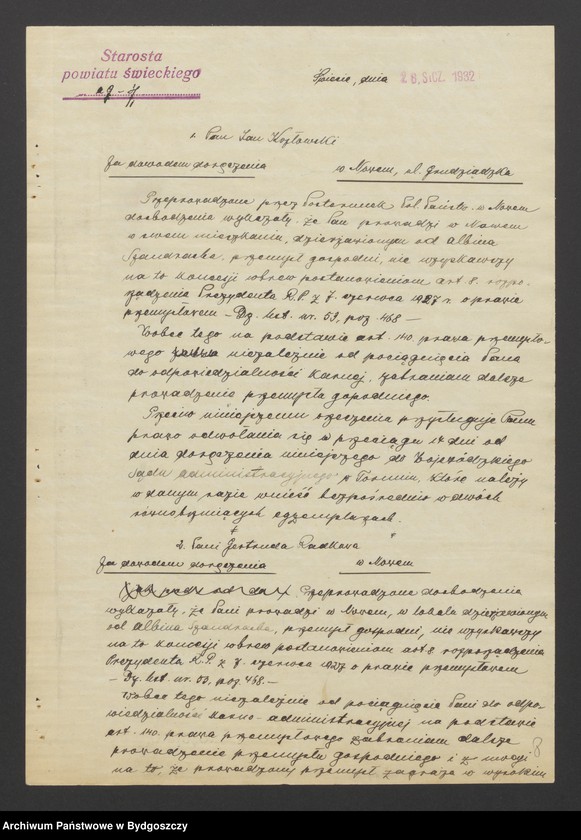 Starosta
powiatu świeckiego
Świecie, dnia 28. SICZ. 1932
1. Pan Jan Kozłowski
Za dowodem doręczenia w Nowem, ul. Grudziądzka
Przeprowadzone przez Posterunek Pol. Państw. w Nowem
dochodzenia wykazały, że Pan prowadzi w Nowem
w swem mieszkaniu, dzierżawionym od Albina
przemysł gospodni, nie uzyskawszy
na to koncesji wbrew postanowieniom art 8. rozpo-
rządzenia Prezydenta R.P. z 7. czerwca 1927 r. o prawie
przemysłowem – Dz. Ust. nr. 53, poz. 468 –
Wobec tego na podstawie art. 140. prawa przemysło-
wego niezależnie od pociągnięcia Pana
do odpowiedzialności karnej, zabraniam dalsze
prowadzenie przemysłu gospodniego.
Przeciw niniejszemu orzeczeniu przysługuje Panu
prawo odwołania się w przeciągu 14 dni od
dnia doręczenia niniejszego do Wojewódzkiego
Sądu administracyjnego w Toruniu, które należy
w danym razie wnieść bezpośrednio w dwóch
równobrzmiących egzemplarzach.
2. Pani Gertruda
Za dowodem doręczenia w Nowem
Przeprowadzone dochodzenia
wykazały, że Pani prowadzi w Nowem, w lokalu dzierżawionym
od Albina przemysł gospodni, nie uzyskawszy
na to koncesji wbrew postanowieniom art 8 rozporządzenia
Prezydenta R.P. z 7. czerwca 1927 o prawie przemysłowem
– Dz. Ust. nr. 53, poz. 468. –
Wobec tego niezależnie od pociągnięcia Pani do odpo-
wiedzialności karno-administracyjnej na podstawie
art. 140. prawa przemysłowego zabraniam dalsze
prowadzenie przemysłu gospodniego i z uwagi
na to, że prowadzony przemysł zagraża w wysokim
8
Archiwum Państwowe w Bydgoszczy